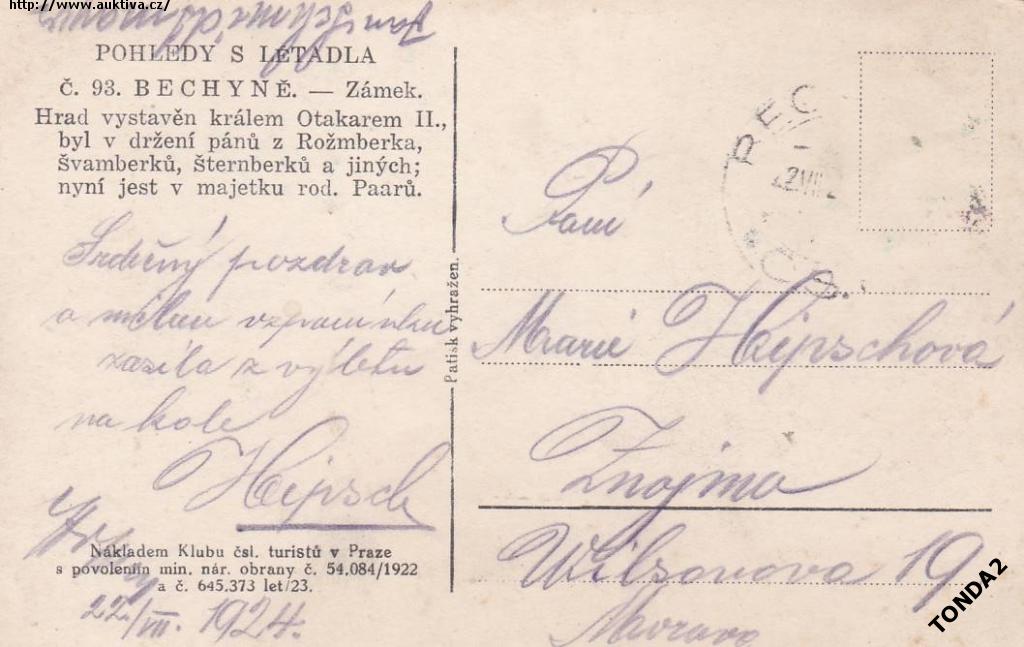 http://www.auktiva.cz/
POHLEDY S LETADLA
Č. 93. BECHYNĚ. — Zámek.
Hrad vystavěn králem Otakarem II.,
byl v držení pánů z Rožmberka,
Švamberků, Šternberků a jiných;
nyní jest v majetku rod. Paarů.
Srdečný pozdrav
a milou vzpomínku
zasílá z výletu
na kole
Hejpsch
22/VIII. 1924.
Nákladem Klubu čsl. turistů v Praze
s povolením min. nár. obrany č. 54.084/1922
a č. 645.373 let/23.
Patisk vyhražen.
Paní
Marie Hejpschová
Znojmo
Wilsonova 19
Morava
TONDA2